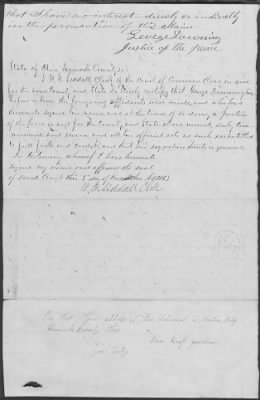 that I have no interest directly or indirectly
in the prosecution of this claim
George Downing
Justice of the peace
State of Ohio Hancock County SS
I W W Siddall Clerk of the Court of Common Pleas in and
for the County and State do hereby certify that George Downing Esq
before whom the foregoing affidavits were made and who has
thereunto signed his name was at the time of so doing a Justice
of the peace in and for the County and State above named, duly com
missioned and sworn and all his official acts as such are entitled
to full faith and credit and that his signature thereto is genuine
In testimony whereof I have hereunto
signed my name and affixed the seal
of said Court this day of
W. W. Siddall Clk
The Post Office address of the
Hancock County Ohio
guardian